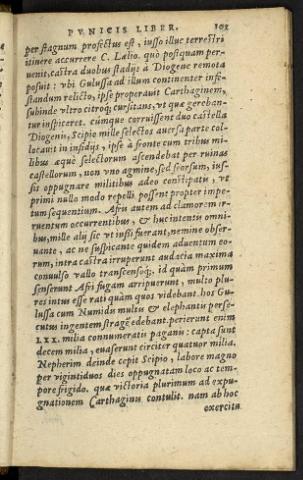 PVNICIS LIBER. 103
per stagnum profectus est, iusso illuc terrestri
itinere accurrere C. Lælio. quò posiquam per-
uenit, castra duobus stadijs à Diogene remota
posuit: vbi Gulussa ad illum continenter infi-
standum relicto, ipse properauit Carthaginem,
subinde vltro citroq; cursitans, vt quæ gereban-
tur inspiceret. cúmque corruissent duo castella
Diogenis, Scipio mille selectos auersa parte col-
locauit in insidijs, ipse à fronte cum tribus mi-
libus æquè selectorum ascendebat per ruinas
castellorum, non vno agmine, sed seorsum, ius-
sis oppugnare militibus adeo constipatu, vt
primi nullo modo repelli possent propter impe-
tum sequentium. Afri autem ad clamorem ir-
ruentium occurrentibus, & huc intentis omni-
bus, mille alij sic vt iussi fuerant, nemine obser-
uante, ac ne suspicante quidem aduentum eo-
rum, intra castra irruperunt audacia maxima
conuulso vallo transcensoq;. id quàm primum
senserunt Afri fugam arripuerunt, multo plu-
res intus esse rati quàm quos videbant. hos Gu-
lussa cum Numidis multis & elephantis perse-
cutus ingentem stragē edebant. perierunt enim
LXX. milia connumeratis paganis: capta sunt
decem milia, euaserunt circiter quatuor milia.
Nepherim deinde cepit Scipio, labore magno
per vigintiduos dies oppugnatam loco ac tem-
pore frigido. quæ victoria plurimum ad expu-
gnationem Carthaginis contulit. nam ab hoc
exercitu